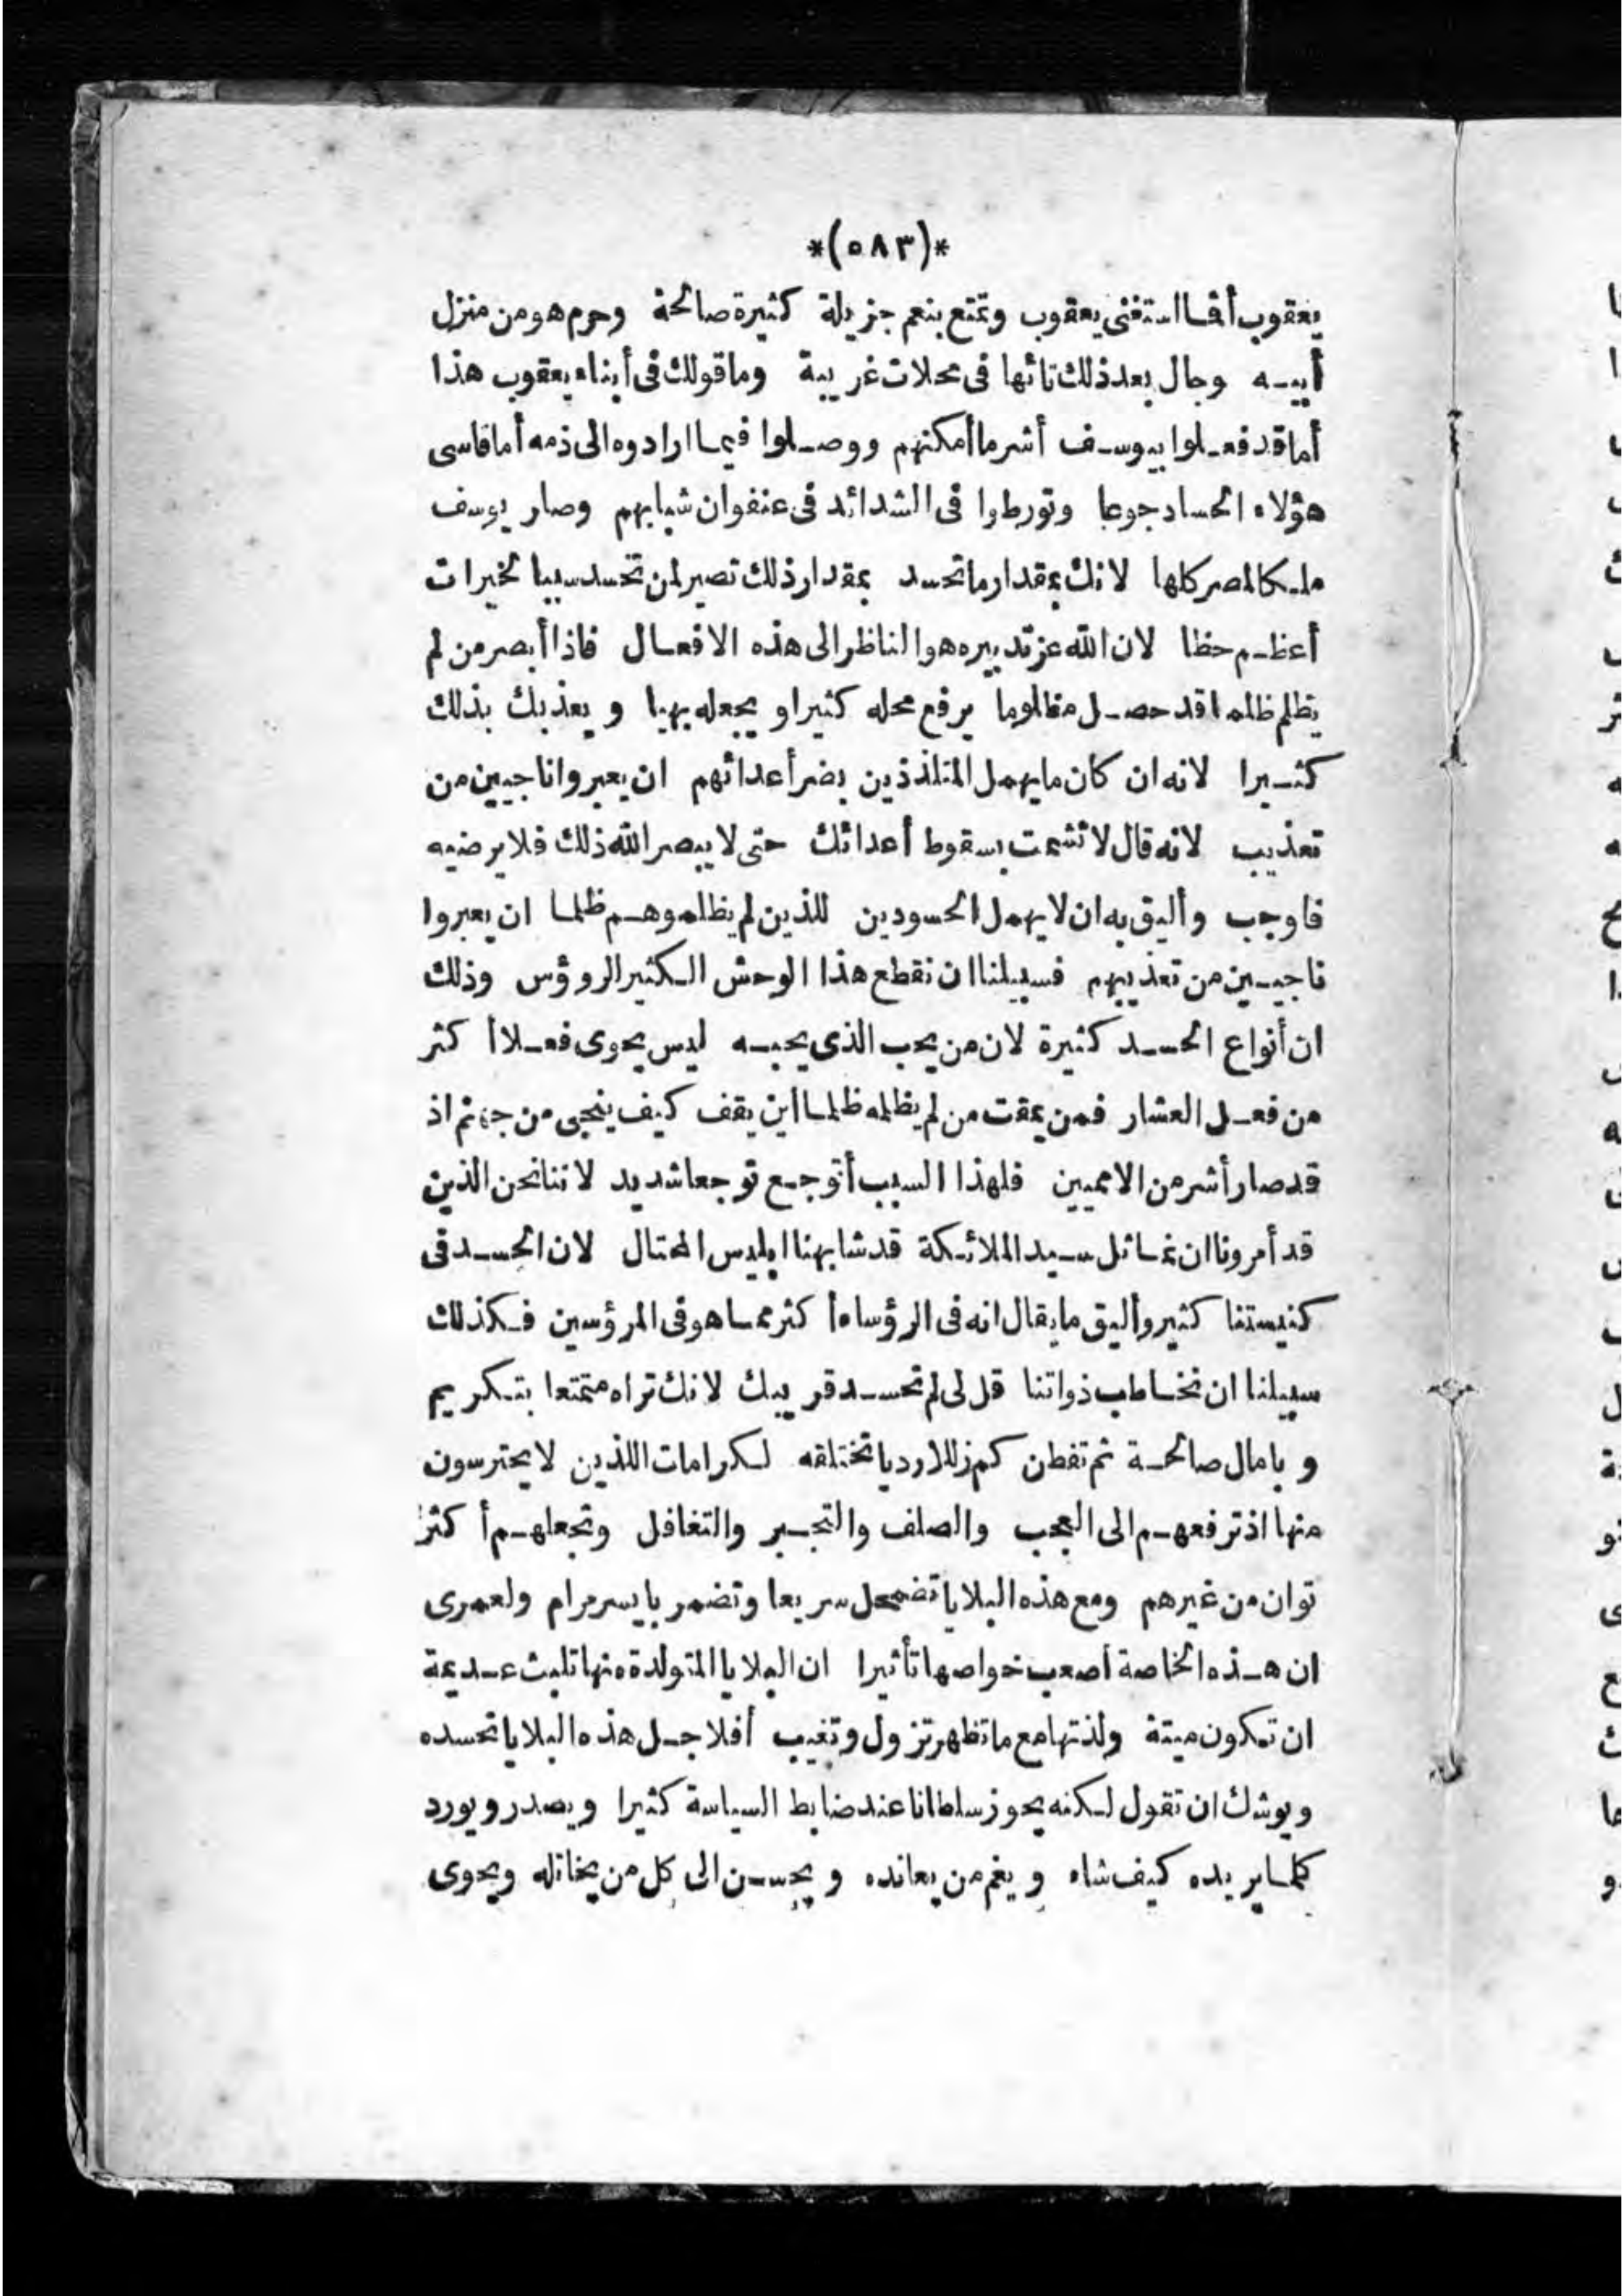 *(٥٨٣)*
يعقوب أفما استغنى يعقوب وتمتع بنعم جزيلة كثيرة صالحة وحرم هو من منزل
أبيه وجال بعد ذلك تائها فى محلات غريبة وما قولك فى أبناء يعقوب هذا
أما قد فعلوا بيوسف أشر ما أمكنهم ووصلوا فيما ارادوه الى ذمه أما قاسى
هؤلاء الحساد جوعا وتورطوا فى الشدائد فى عنفوان شبابهم وصار يوسف
ملكا لمصر كلها لانك بمقدار ما تحسد بمقدار ذلك تصير لمن تحسد سببا لخيرات
أعظم حظا لان الله عز تدبيره هو الناظر الى هذه الافعال فاذا أبصر من لم
يظلم ظلما قد حصل مظلوما يرفع محله كثيرا و يجعله بهيا و يعذبك بذلك
كثيرا لانه ان كان ما يهمل المتلذذين بضر أعدائهم ان يعبروا ناجيين من
تعذيب لانه قال لا تشمت بسقوط أعدائك حتى لا يبصر الله ذلك فلا يرضيه
فاوجب وأليق به ان لا يهمل الحسودين للذين لم يظلموهم ظلما ان يعبروا
ناجيين من تعذيبهم فسبيلنا ان نقطع هذا الوحش الكثير الرؤوس وذلك
ان أنواع الحسد كثيرة لان من يحب الذى يحبه ليس يحوى فعلا أكثر
من فعل العشار فمن يمقت من لم يظلمه ظلما أين يقف كيف ينجى من جهنم اذ
قد صار أشر من الامميين فلهذا السبب أتوجع توجعا شديد لاننا نحن الذين
قد أمرونا ان نماثل سيد الملائكة قد شابهنا ابليس المحتال لان الحسد فى
كنيستنا كثير وأليق ما يقال انه فى الرؤساء أكثر مما هو فى المرؤسين فكذلك
سبيلنا ان نخاطب ذواتنا قل لى لم تحسد قريبك لانك تراه متمتعا بتكريم
و بامال صالحة ثم تفطن كم زللا رديا تختلقه لكرامات اللذين لا يحترسون
منها اذ ترفعهم الى العجب والصلف والتجبر والتغافل وتجعلهم أكثر
توان من غيرهم ومع هذه البلايا تضمحل سريعا وتضمر بايسر مرام ولعمرى
ان هذه الخاصة أصعب خواصها تأثيرا ان البلايا المتولدة منها تلبث عديمة
ان تكون ميتة ولذتها مع ما تظهر تزول وتغيب أفلاجل هذه البلايا تحسده
ويوشك ان تقول لكنه يحوز سلطانا عند ضابط السياسة كثيرا و يصدر و يورد
كلما يريده كيف شاء و يغم من يعانده و يحسن الى كل من يخاتله ويحوى